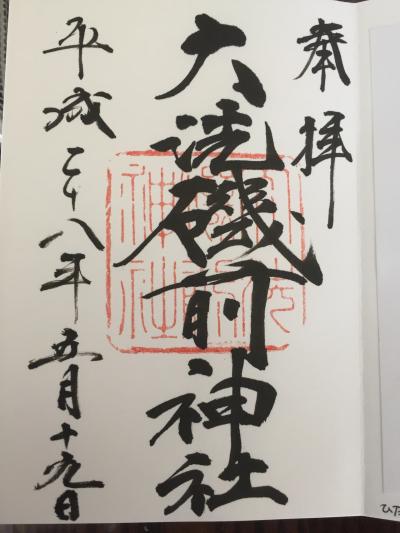 奉拝
大洗磯前神社
平成二十八年五月十九日
ひた